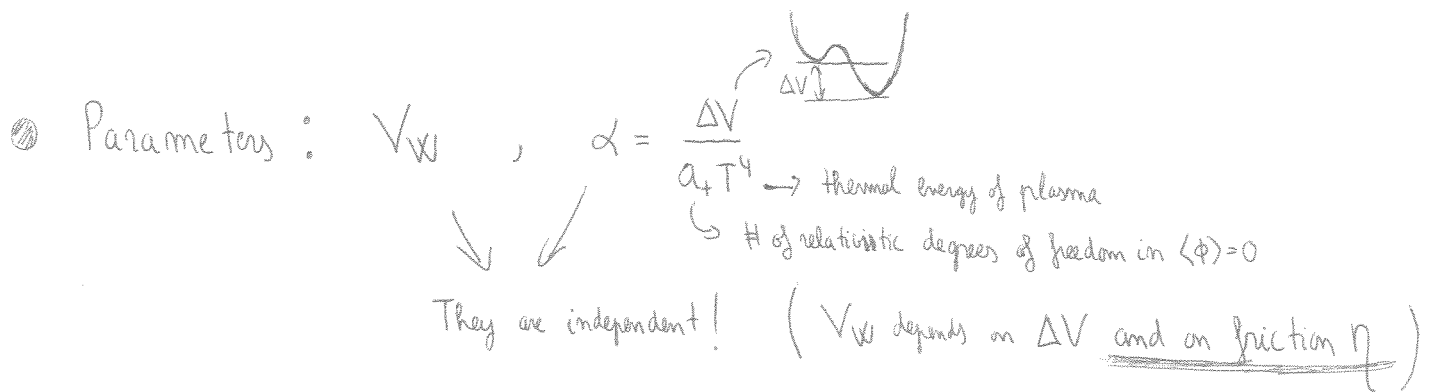 ΔV
Parameters : V_W , α = ΔV / a₊T⁴ → thermal energy of plasma
↳ # of relativistic degrees of freedom in ⟨ϕ⟩=0
They are independent! ( V_W depends on ΔV and on friction η )